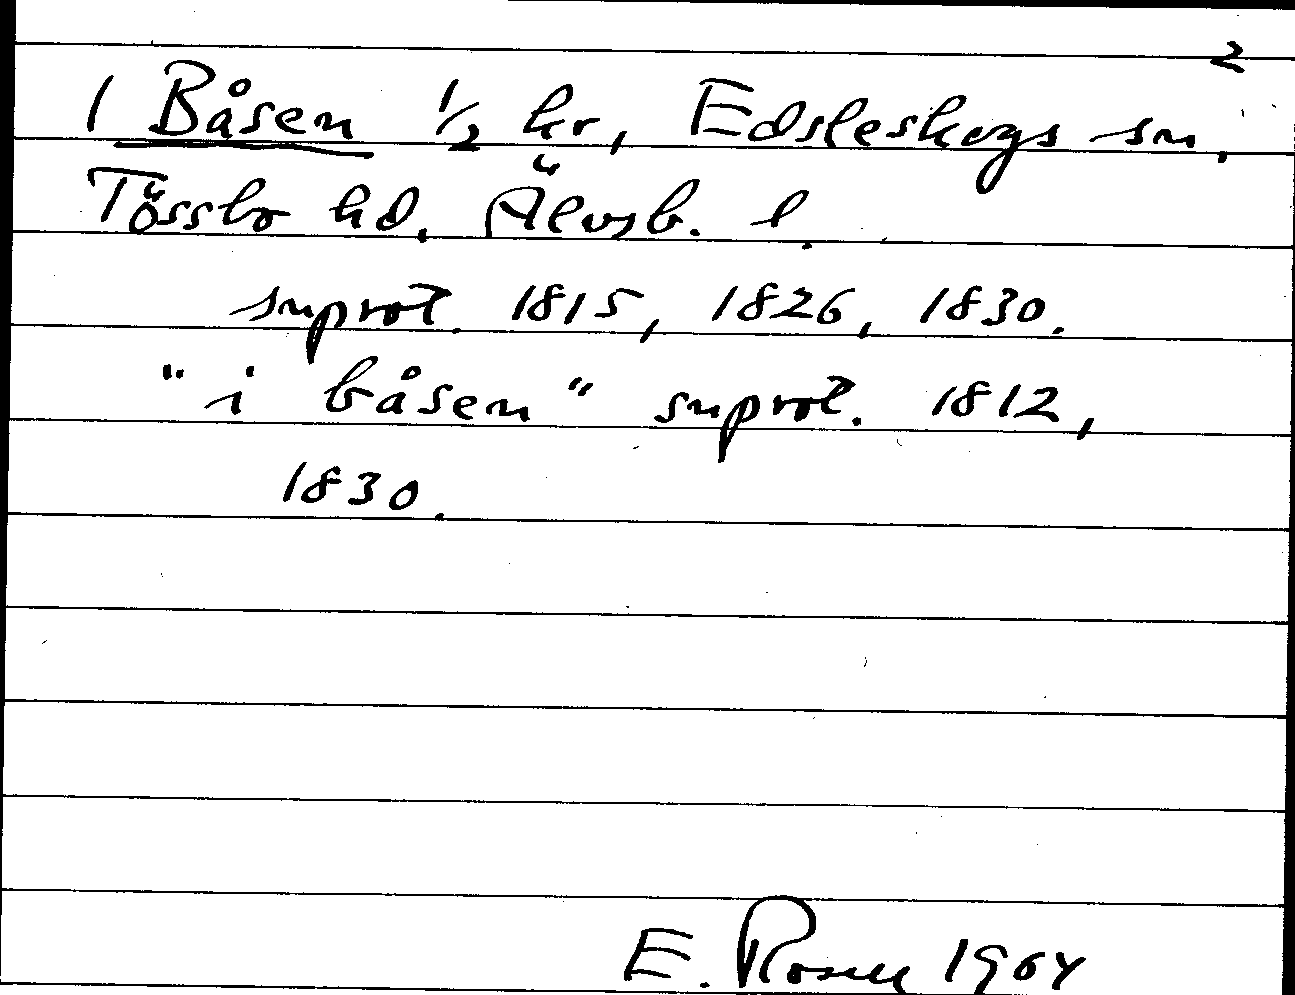 2
1 Båsen 1/2 hr, Edsleskogs sn.
Tössbo hd. Älvsb. l.
snprot. 1815, 1826, 1830.
"i båsen" snprot. 1812,
1830.
E. Rosell 1964